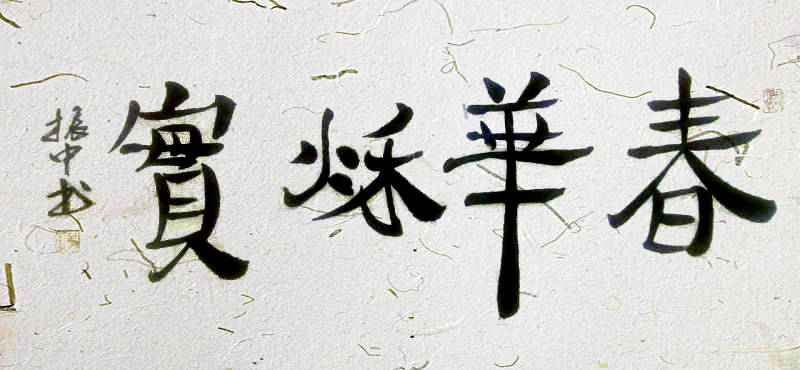 春華秌實
振中书